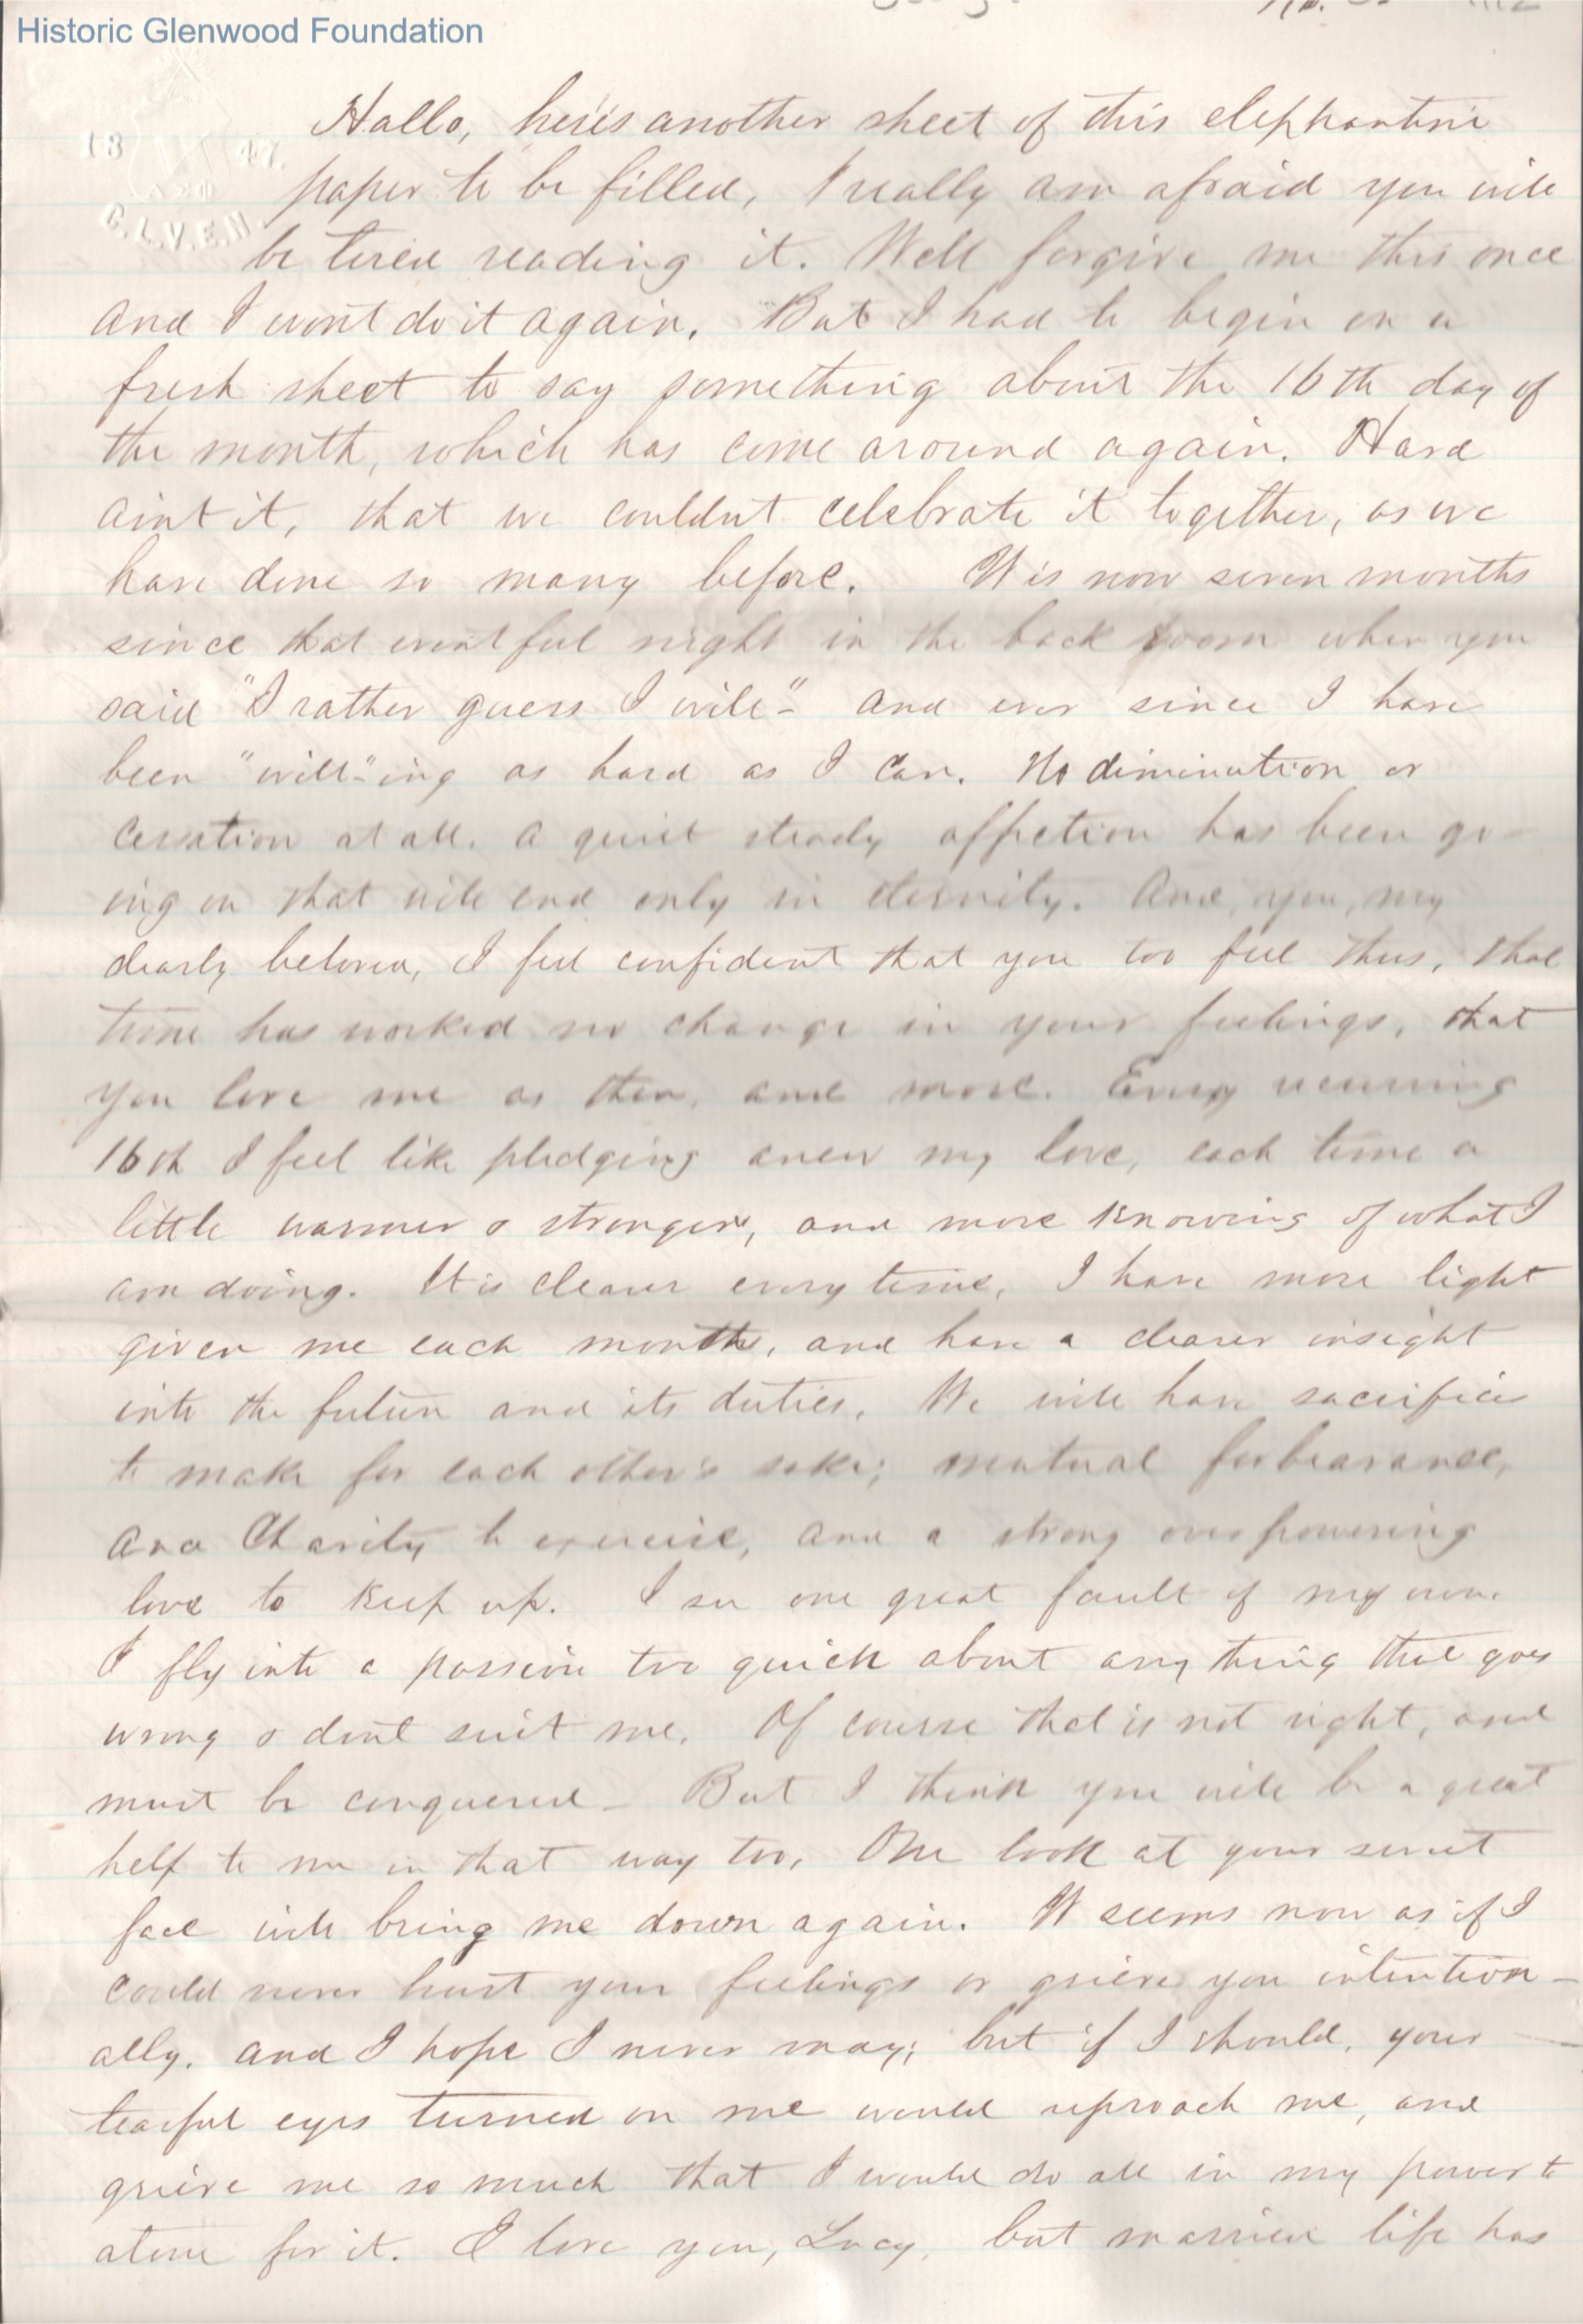 Historic Glenwood Foundation
Hallo, here's another sheet of this elephantine
18 47.
paper to be filled, I really am afraid you will
C.L.V.E.H.
be tired reading it. Well forgive me this once
and I wont do it again. But I had to begin on a
fresh sheet to say something about the 16th day of
the month, which has come around again. Hard
aint it, that we couldnt celebrate it together, as we
have done so many before. It is now seven months
since that eventful night in the back room when you
said "I rather guess I will" - and ever since I have
been "will"-ing as hard as I can. No diminution or
cessation at all. A quiet steady affection has been go-
ing on that will end only in eternity. And, you, my
dearly beloved, I feel confident that you too feel thus, that
time has worked no change in your feelings, that
you love me as then, and more. Every recurring
16th I feel like pledging anew my love, each time a
little warmer & stronger, and more knowing of what I
am doing. It is clearer every time, I have more light
given me each month, and have a clearer insight
into the future and its duties. We will have sacrifices
to make for each other's sake; mutual forbearance,
and Charity to exercise, and a strong overpowering
love to keep up. I see one great fault of my own.
I fly into a passion too quick about any thing that goes
wrong & dont suit me. Of course that is not right, and
must be conquered - But I think you will be a great
help to me in that way too, One look at your sweet
face will bring me down again. It seems now as if I
could never hurt your feelings or grieve you intention-
ally. and I hope I never may; but if I should, your
tearful eyes turned on me would reproach me, and
grieve me so much that I would do all in my power to
atone for it. I love you, Lucy, but married life has